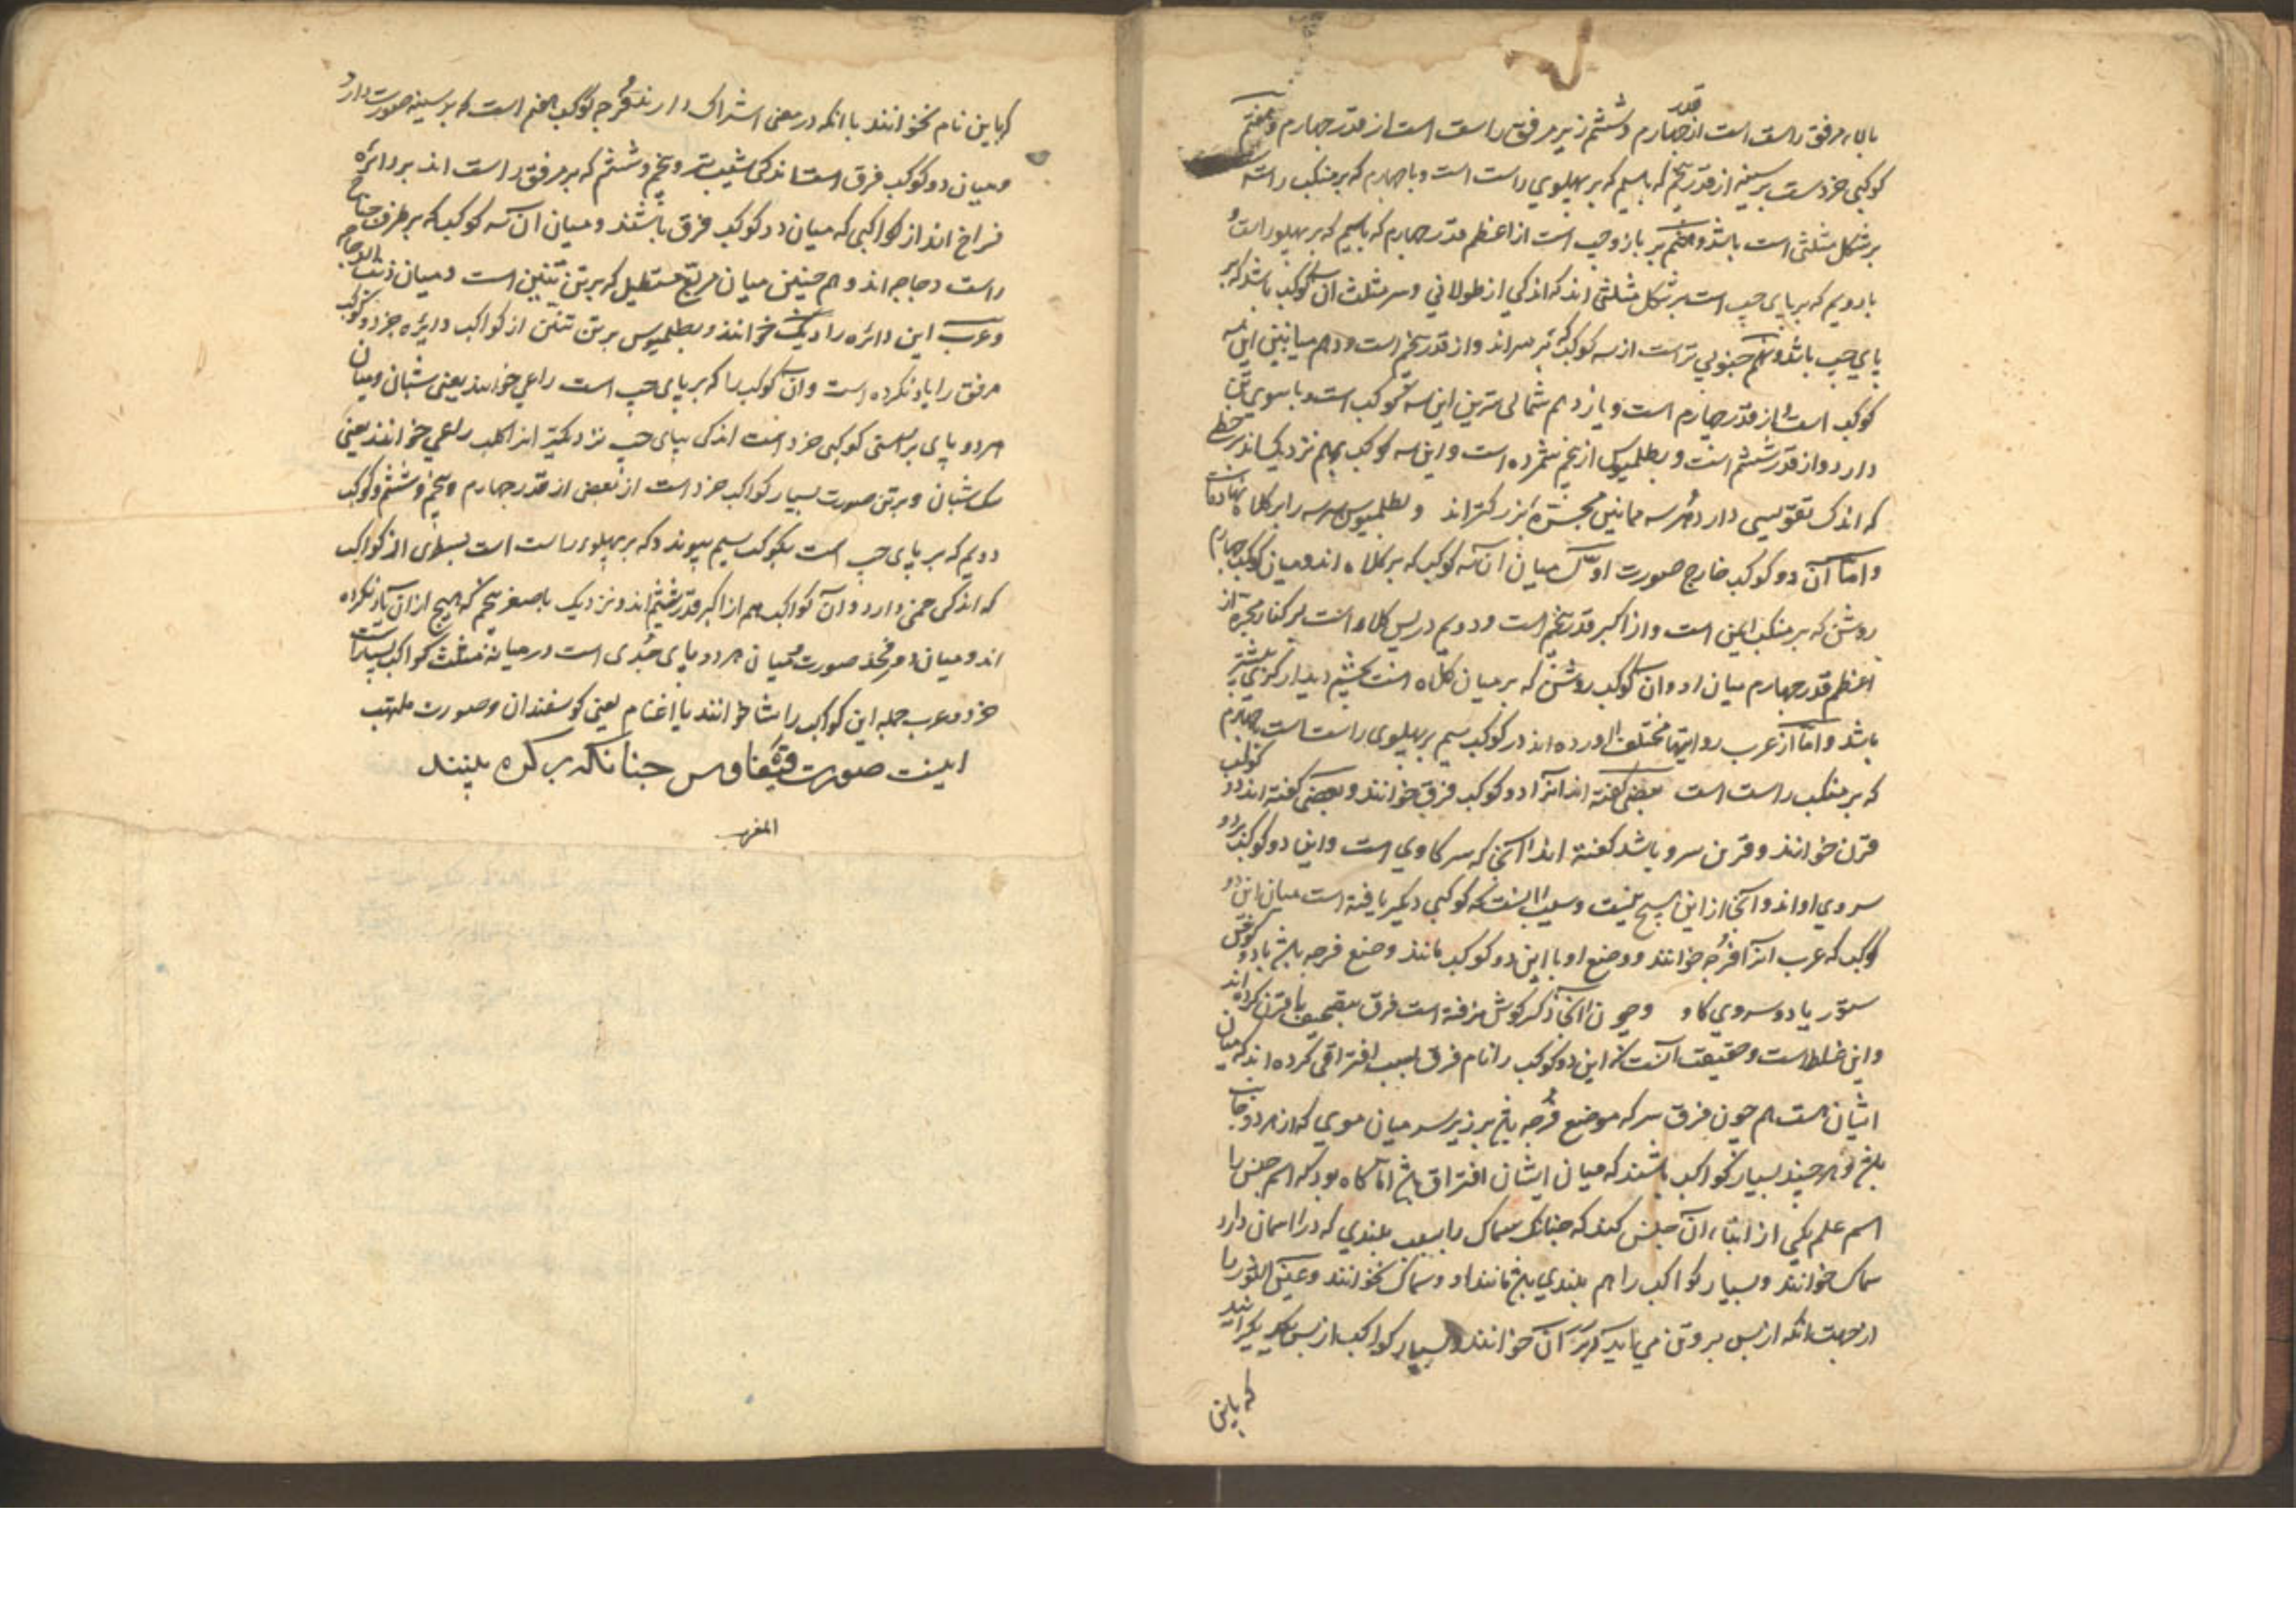 بالای مرفق راست است از قدر چهارم و ششم زیر مرفق راست است از قدر چهارم و هفتم
کوکبی خردست بر سینه از قدر پنجم که باسیم که بر پهلوی راست است و با چهارم که بر منکب راست
بر شکل مثلثی است باشد و هشتم بر بازو چپ است از اعظم قدر چهارم که باسیم که بر پهلو راست و
بادویم که بر پای چپ است بر شکل مثلثی اند که اندکی از طولانی و سر مثلث آن کوکب باشد که بر
پای چپ باشد و نهم جنوبی تر است از سه کوکب که بر سر اند و از قدر پنجم است و دهم میانین این سه
کوکب است و از قدر چهارم است و یازدهم شمالی ترین این سه کوکب است و با سوی
دارد و از قدر ششم است و بطلمیوس از پنجم شمرده است و این سه کوکب بهم نزدیک اند بر خط
که اندک تقویسی دارد و هر سه مانین مجره بزرکتر اند و بطلمیوس هر سه را بر کلاه نهاده است
و اما آن دو کوکب خارج صورت اول میان آن سه کوکب که بر کلاه اند و میان کوکب چهارم
روشن که بر منکب ایمن است و از اکبر قدر پنجم است و دویم در پس کلاه است بر کنار مجره از
اعظم قدر چهارم میان او و آن کوکب روشن که بر میان کلاه است بچشم دیدار کزی بیشتر
باشد و اما از عرب روایتها مختلف آورده اند در کوکب سیم بر پهلوی راست است و چهارم
که بر منکب راست است بعضی کفته اند آنرا دو کوکب فرق خوانند و بعضی کفته اند دو کوکب
قرن خوانند و قرن سرو باشد کفته اند آنجا که سر کاوی است و این دو کوکب دو
سروی او اند و آنجا از این هیچ نیست و سبب آنست که کوکبی دیکر یافته است میان این دو
کوکب که عرب آنرا قرحه خوانند و وضع او با این دو کوکب مانند وضع قرحه باشد با دو کوش
ستور یا دو سروی کاو و چون آنجا ذکر کوش نرفته است فرق بتصحیف با قرن کرده اند
و این غلط است و حقیقت آنست که این دو کوکب را نام فرق بسبب افتراقی کرده اند که میان
ایشان است هم چون فرق سر که موضع فرجه باشد بر زبر سر میان موی که از هر دو جانب
باشد و هر چند بسیار کواکب باشند که میان ایشان افتراق باشد اما کاه بود که اسم جنس را
اسم علم یکی از ابناء آن جنس کنند که چنانک سماک را بسبب بلندی که در آسمان دارد
سماک خوانند و بسیار کواکب را هم بلندی باشد مانند او و سماک نخوانند و عین الثور را
از جهت آنکه از پس پروین می آید دبران خوانند و بسیار کواکب از پس یکدیکر آیند
که باین
که باین نام نخوانند با آنکه در معنی اشتراک دارند و قرحه کوکب هفتم است که بر سینه صورت دارد
و میان دو کوکب فرق است اندکی شیب تر و پنجم و ششم که بر مرفق راست اند بر دائره
فراخ اند از کواکبی که میان دو کوکب فرق باشند و میان آن سه کوکب که بر طرف جناح
راست دجاجه اند و هم چنین میان مربع مستطیل که بر تن تنین است و میان ذنب الدجاجه
و عرب این دائره را دیک خوانند و بطلمیوس بر تن تنین از کواکب دایره جز دو کوکب
مرفق را یاد نکرده است و آن کوکب را که بر پای چپ است راعی خوانند یعنی شبان و میان
هر دو پای بر راستی کوکبی خرد است اندکی بپای چپ نزدیکتر انرا کلب راعی خوانند یعنی
سک شبان و بر تن صورت بسیار کواکب خرد است از بعض از قدر چهارم و پنجم و ششم و کوکب
دویم که بر پای چپ است بکوکب سیم پیوندد که بر پهلوی راست است بسطری از کواکب
که اندکی خمی دارد و آن کواکب هم از اکبر قدر ششم اند و نزدیک باصغر پنجم که هیچ از آن یاد نکرده
اند و میان دو فخذ صورت و میان هر دو پای جدی است در میانه مثلث کواکب بسیار است
خرد و عرب جمله این کواکب را شاه خوانند یا اغنام یعنی کوسفندان و صورت ملتهب
اینست صورت قیفاوس چنانکه بر کره بینند
المغرب